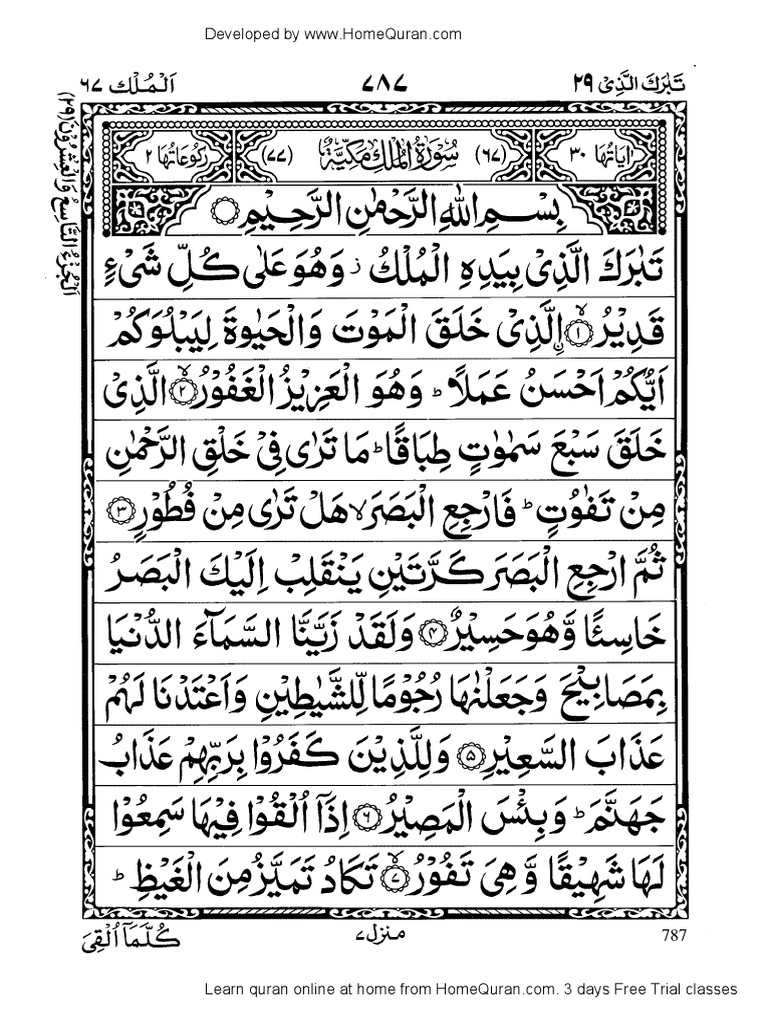 Developed by www.HomeQuran.com
تَبٰرَكَ الَّذِیْ ٢٩
٧٨٧
اَلْمُلْك ٦٧
اَلْجُزْءُ التَّاسِعُ وَالْعِشْرُوْنَ (٢٩)
اٰيَاتُهَا ٣٠
(٦٧) سُوْرَةُ الْمُلْكِ مَكِّيَّةٌ (٧٧)
رُكُوْعَاتُهَا ٢
بِسْمِ اللّٰهِ الرَّحْمٰنِ الرَّحِيْمِ ۝
تَبٰرَكَ الَّذِیْ بِيَدِهِ الْمُلْكُ ز وَهُوَ عَلٰى كُلِّ شَیْءٍ
قَدِيْرُ ۝١ۙ نِ الَّذِیْ خَلَقَ الْمَوْتَ وَالْحَيٰوةَ لِيَبْلُوَكُمْ
اَيُّكُمْ اَحْسَنُ عَمَلًا ؕ وَهُوَ الْعَزِيْزُ الْغَفُوْرُ ۝٢ۙ الَّذِیْ
خَلَقَ سَبْعَ سَمٰوٰتٍ طِبَاقًا ؕ مَا تَرٰى فِیْ خَلْقِ الرَّحْمٰنِ
مِنْ تَفٰوُتٍ ؕ فَارْجِعِ الْبَصَرَ لا هَلْ تَرٰى مِنْ فُطُوْرٍ ۝٣
ثُمَّ ارْجِعِ الْبَصَرَ كَرَّتَيْنِ يَنْقَلِبْ اِلَيْكَ الْبَصَرُ
خَاسِئًا وَّهُوَ حَسِيْرٌ ۝٤ وَلَقَدْ زَيَّنَّا السَّمَآءَ الدُّنْيَا
بِمَصَابِيْحَ وَجَعَلْنٰهَا رُجُوْمًا لِّلشَّيٰطِيْنِ وَاَعْتَدْنَا لَهُمْ
عَذَابَ السَّعِيْرِ ۝٥ وَلِلَّذِيْنَ كَفَرُوْا بِرَبِّهِمْ عَذَابُ
جَهَنَّمَ ؕ وَبِئْسَ الْمَصِيْرُ ۝٦ اِذَآ اُلْقُوْا فِيْهَا سَمِعُوْا
لَهَا شَهِيْقًا وَّهِیَ تَفُوْرُ ۝٧ۙ تَكَادُ تَمَيَّزُ مِنَ الْغَيْظِ ؕ
787
منزل ٧
كُلَّمَآ اُلْقِیَ
Learn quran online at home from HomeQuran.com. 3 days Free Trial classes